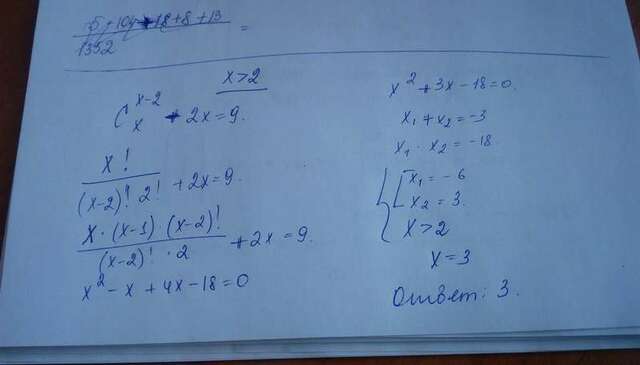 -5+104+18+8+13
1352 =
x>2
C_x^{x-2} + 2x=9.
x!
(x-2)! 2! + 2x=9.
x·(x-1)(x-2)!
(x-2)!·2 + 2x=9.
x²-x+4x-18=0
x²+3x-18=0.
x₁+x₂=-3
x₁·x₂=-18.
x₁=-6
x₂=3.
x>2
x=3
Ответ: 3.